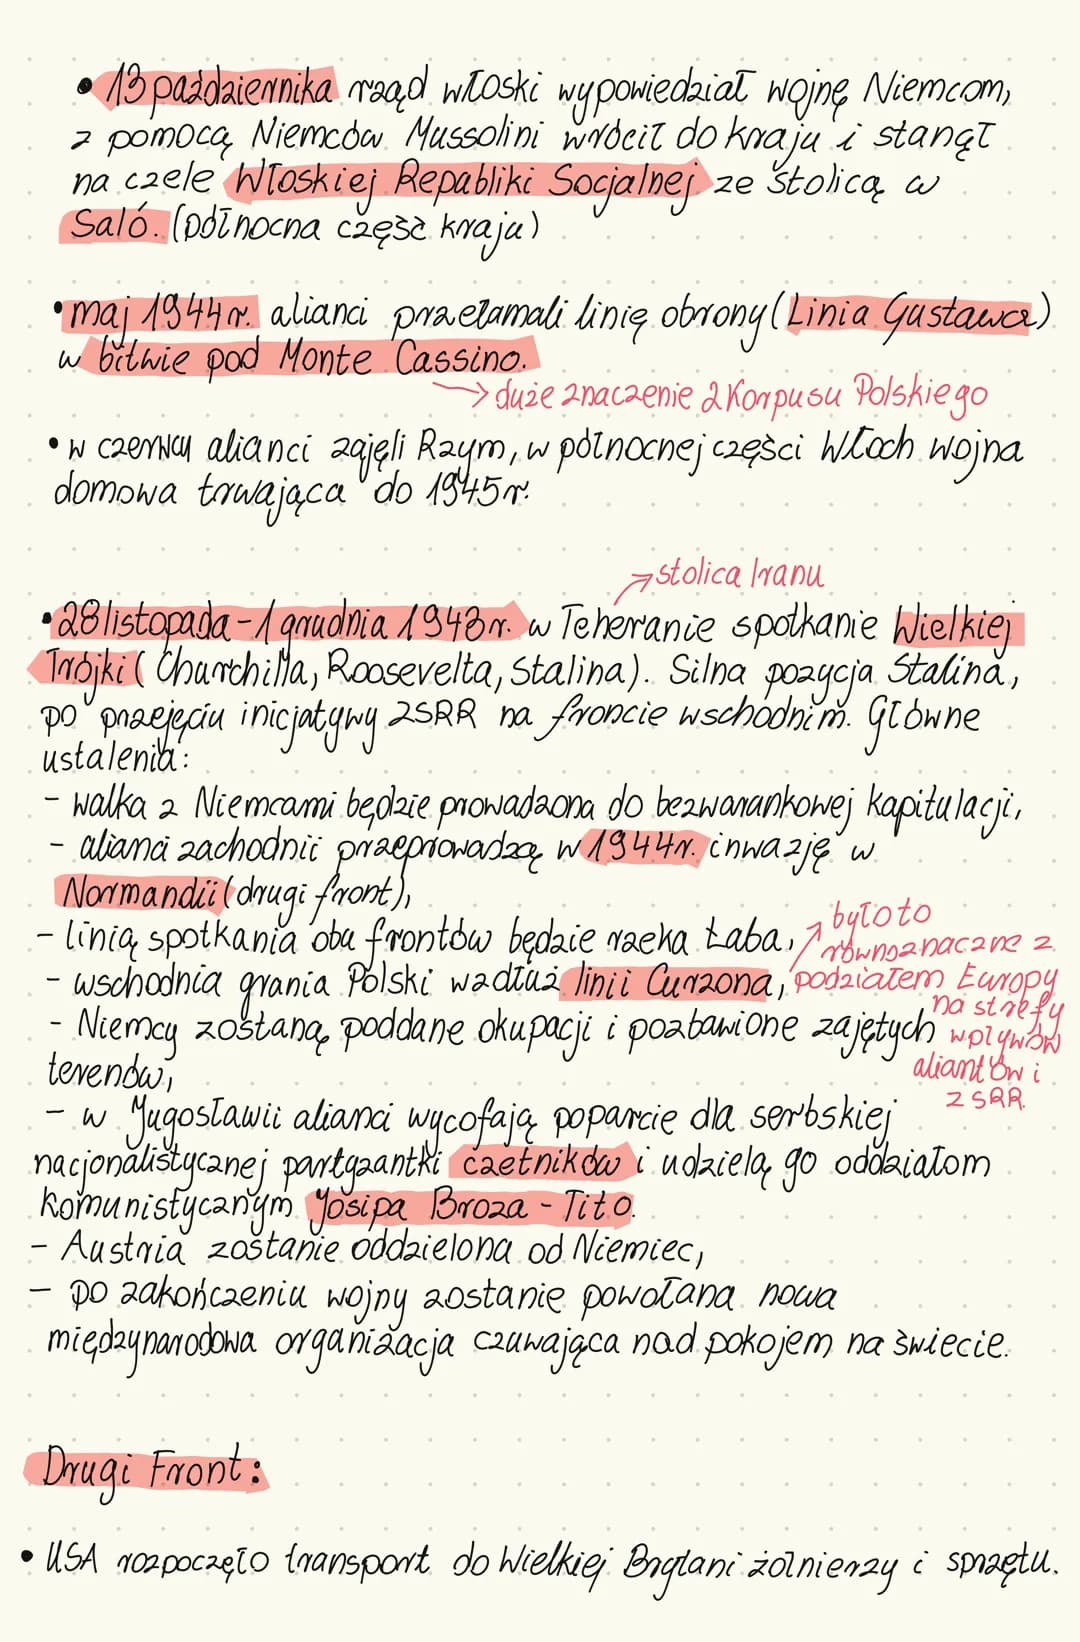 • 13 października rząd włoski wypowiedział wojnę Niemcom,
z pomocą Niemców Mussolini wrócił do kraju i stanął
na czele Włoskiej Repabliki Socjalnej ze stolicą w
Saló. (północna część kraju)
• maj 1944 r. alianci przełamali linię obrony (Linia Gustawa)
w bitwie pod Monte Cassino.
→ duże znaczenie 2 Korpusu Polskiego
• w czerwcu alianci zajęli Rzym, w północnej części Włoch wojna
domowa trwająca do 1945 r.
→ stolica Iranu
• 28 listopada - 1 grudnia 1943 r. w Teheranie spotkanie Wielkiej
Trójki ( Churchilla, Roosevelta, Stalina). Silna pozycja Stalina,
po przejęciu inicjatywy ZSRR na froncie wschodnim. Główne
ustalenia:
- walka z Niemcami będzie prowadzona do bezwarankowej kapitulacji,
- alianci zachodnii przeprowadzą w 1944 r. inwazję w
Normandii (drugi front),
- linią spotkania obu frontów będzie rzeka Łaba,
→ było to
równoznaczne z
podziałem Europy
na strefy
wpływów
aliantów i
ZSRR.
- wschodnia grania Polski wzdłuż linii Curzona,
- Niemcy zostaną poddane okupacji i pozbawione zajętych
terenów,
- w Jugosławii alianci wycofają poparcie dla serbskiej
nacjonalistycznej partyzantki czetników i udzielą go oddziałom
komunistycznym Josipa Broza - Tito.
- Austria zostanie oddzielona od Niemiec,
- po zakończeniu wojny zostanie powołana nowa
międzynarodowa organizacja czuwająca nad pokojem na świecie.
Drugi Front:
• USA rozpoczęło transport do Wielkiej Brytani żołnierzy i sprzętu.